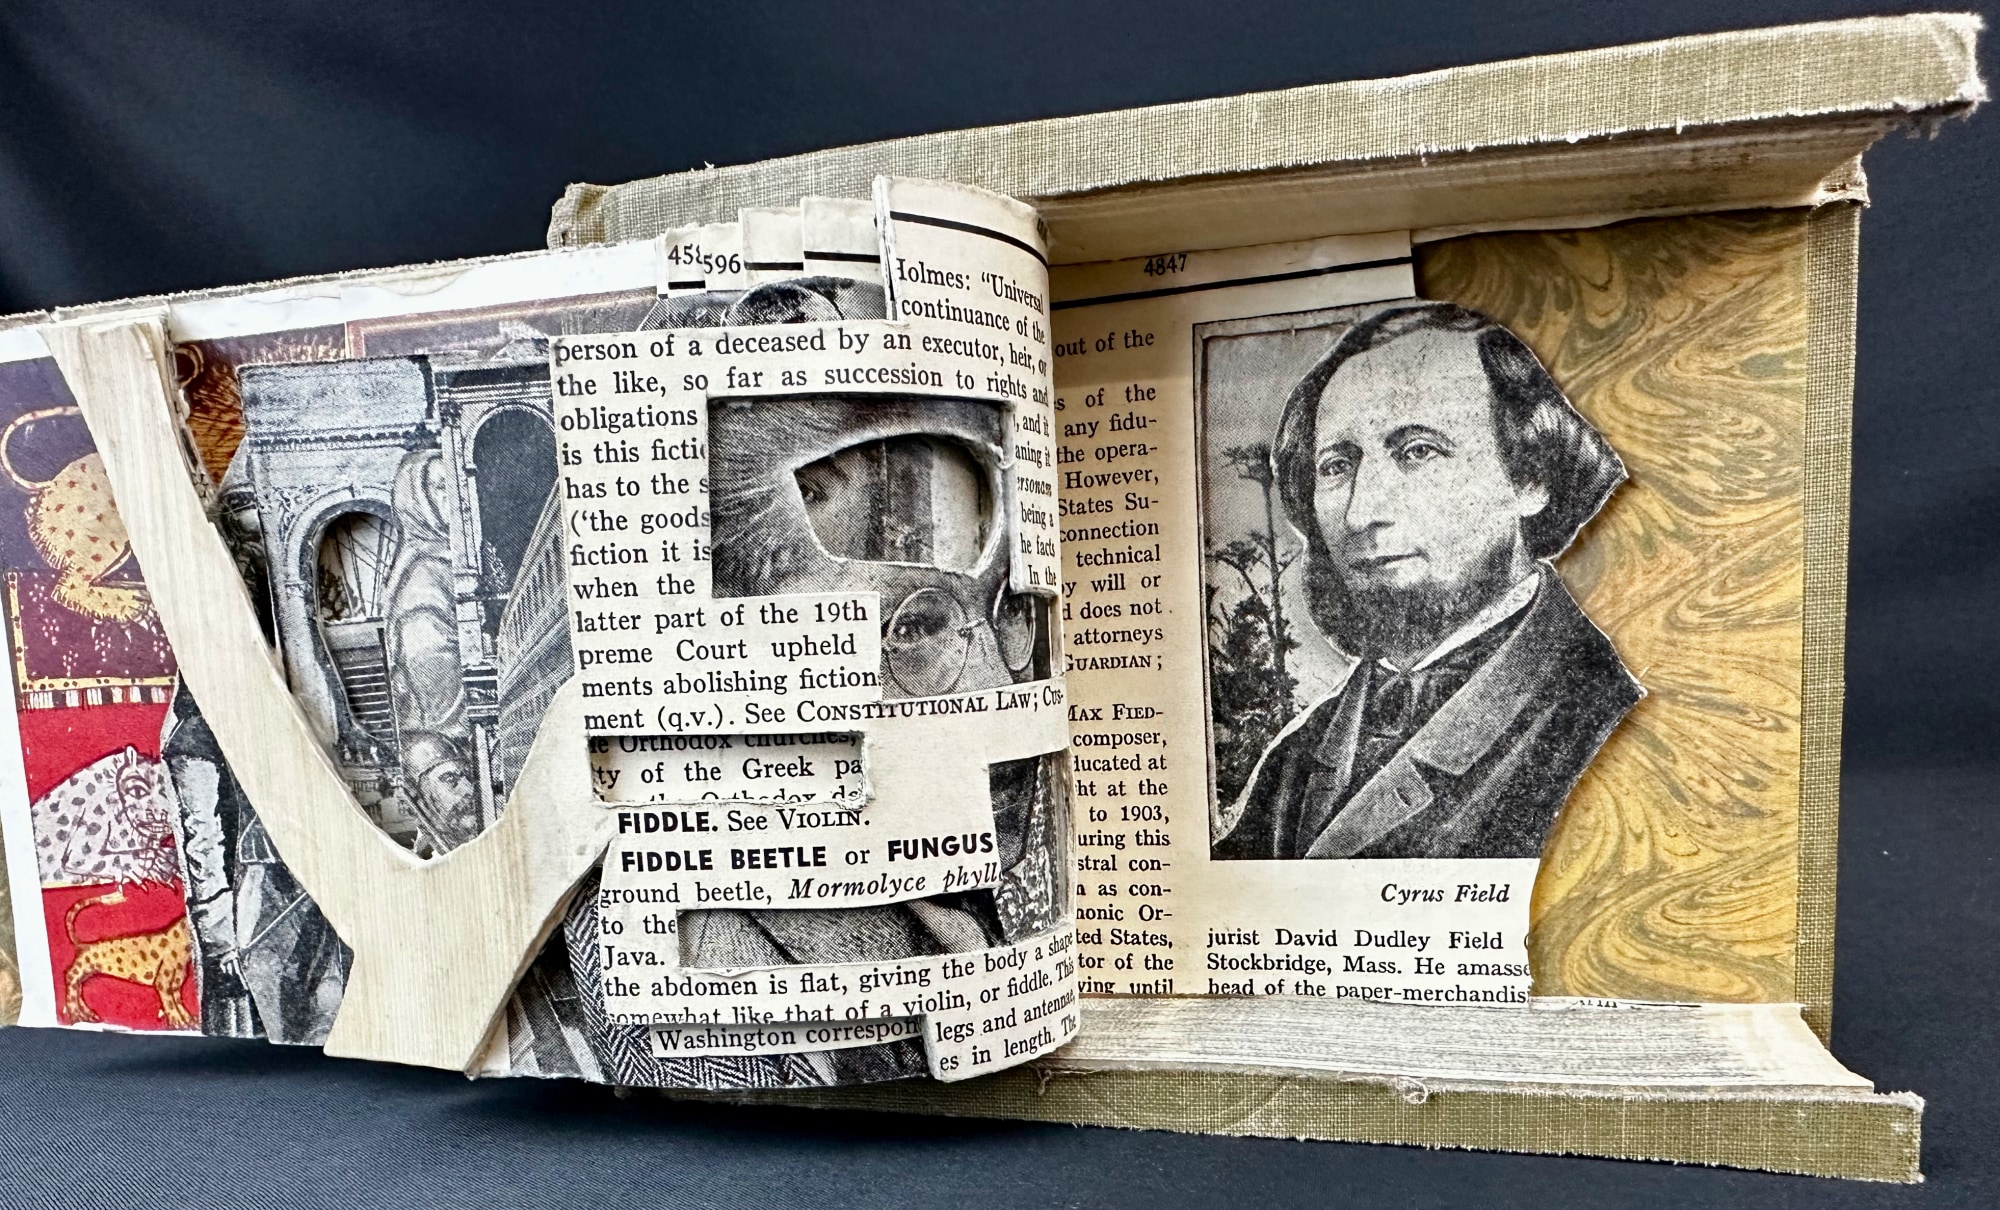 596
Holmes: "Universal
continuance of the
person of a deceased by an executor, heir, or
the like, so far as succession to rights and
obligations
is this ficti
has to the s
('the goods
fiction it is
when the
latter part of the 19th
preme Court upheld
ments abolishing fiction
ment (q.v.). See CONSTITUTIONAL LAW; Cus-
, and it
aning it
ersonam
being a
he facts
In the
Orthodox churches,
ty of the Greek pa
FIDDLE. See VIOLIN.
FIDDLE BEETLE or FUNGUS
ground beetle, Mormolyce phyll
to the
Java.
the abdomen is flat, giving the body a shape
somewhat like that of a violin, or fiddle. This
Washington correspon
legs and antennae,
es in length. The
4847
out of the
s of the
any fidu-
the opera-
However,
States Su-
connection
technical
y will or
d does not
attorneys
GUARDIAN;
MAX FIED-
composer,
ducated at
ht at the
to 1903,
uring this
stral con-
n as con-
monic Or-
ted States,
tor of the
ving until
Cyrus Field
jurist David Dudley Field (
Stockbridge, Mass. He amasse
head of the paper-merchandis